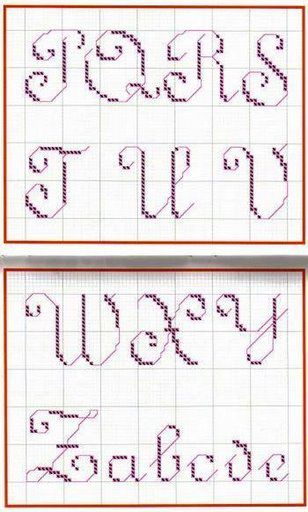 P Q R S
T U V
W X Y
Z a b c d e